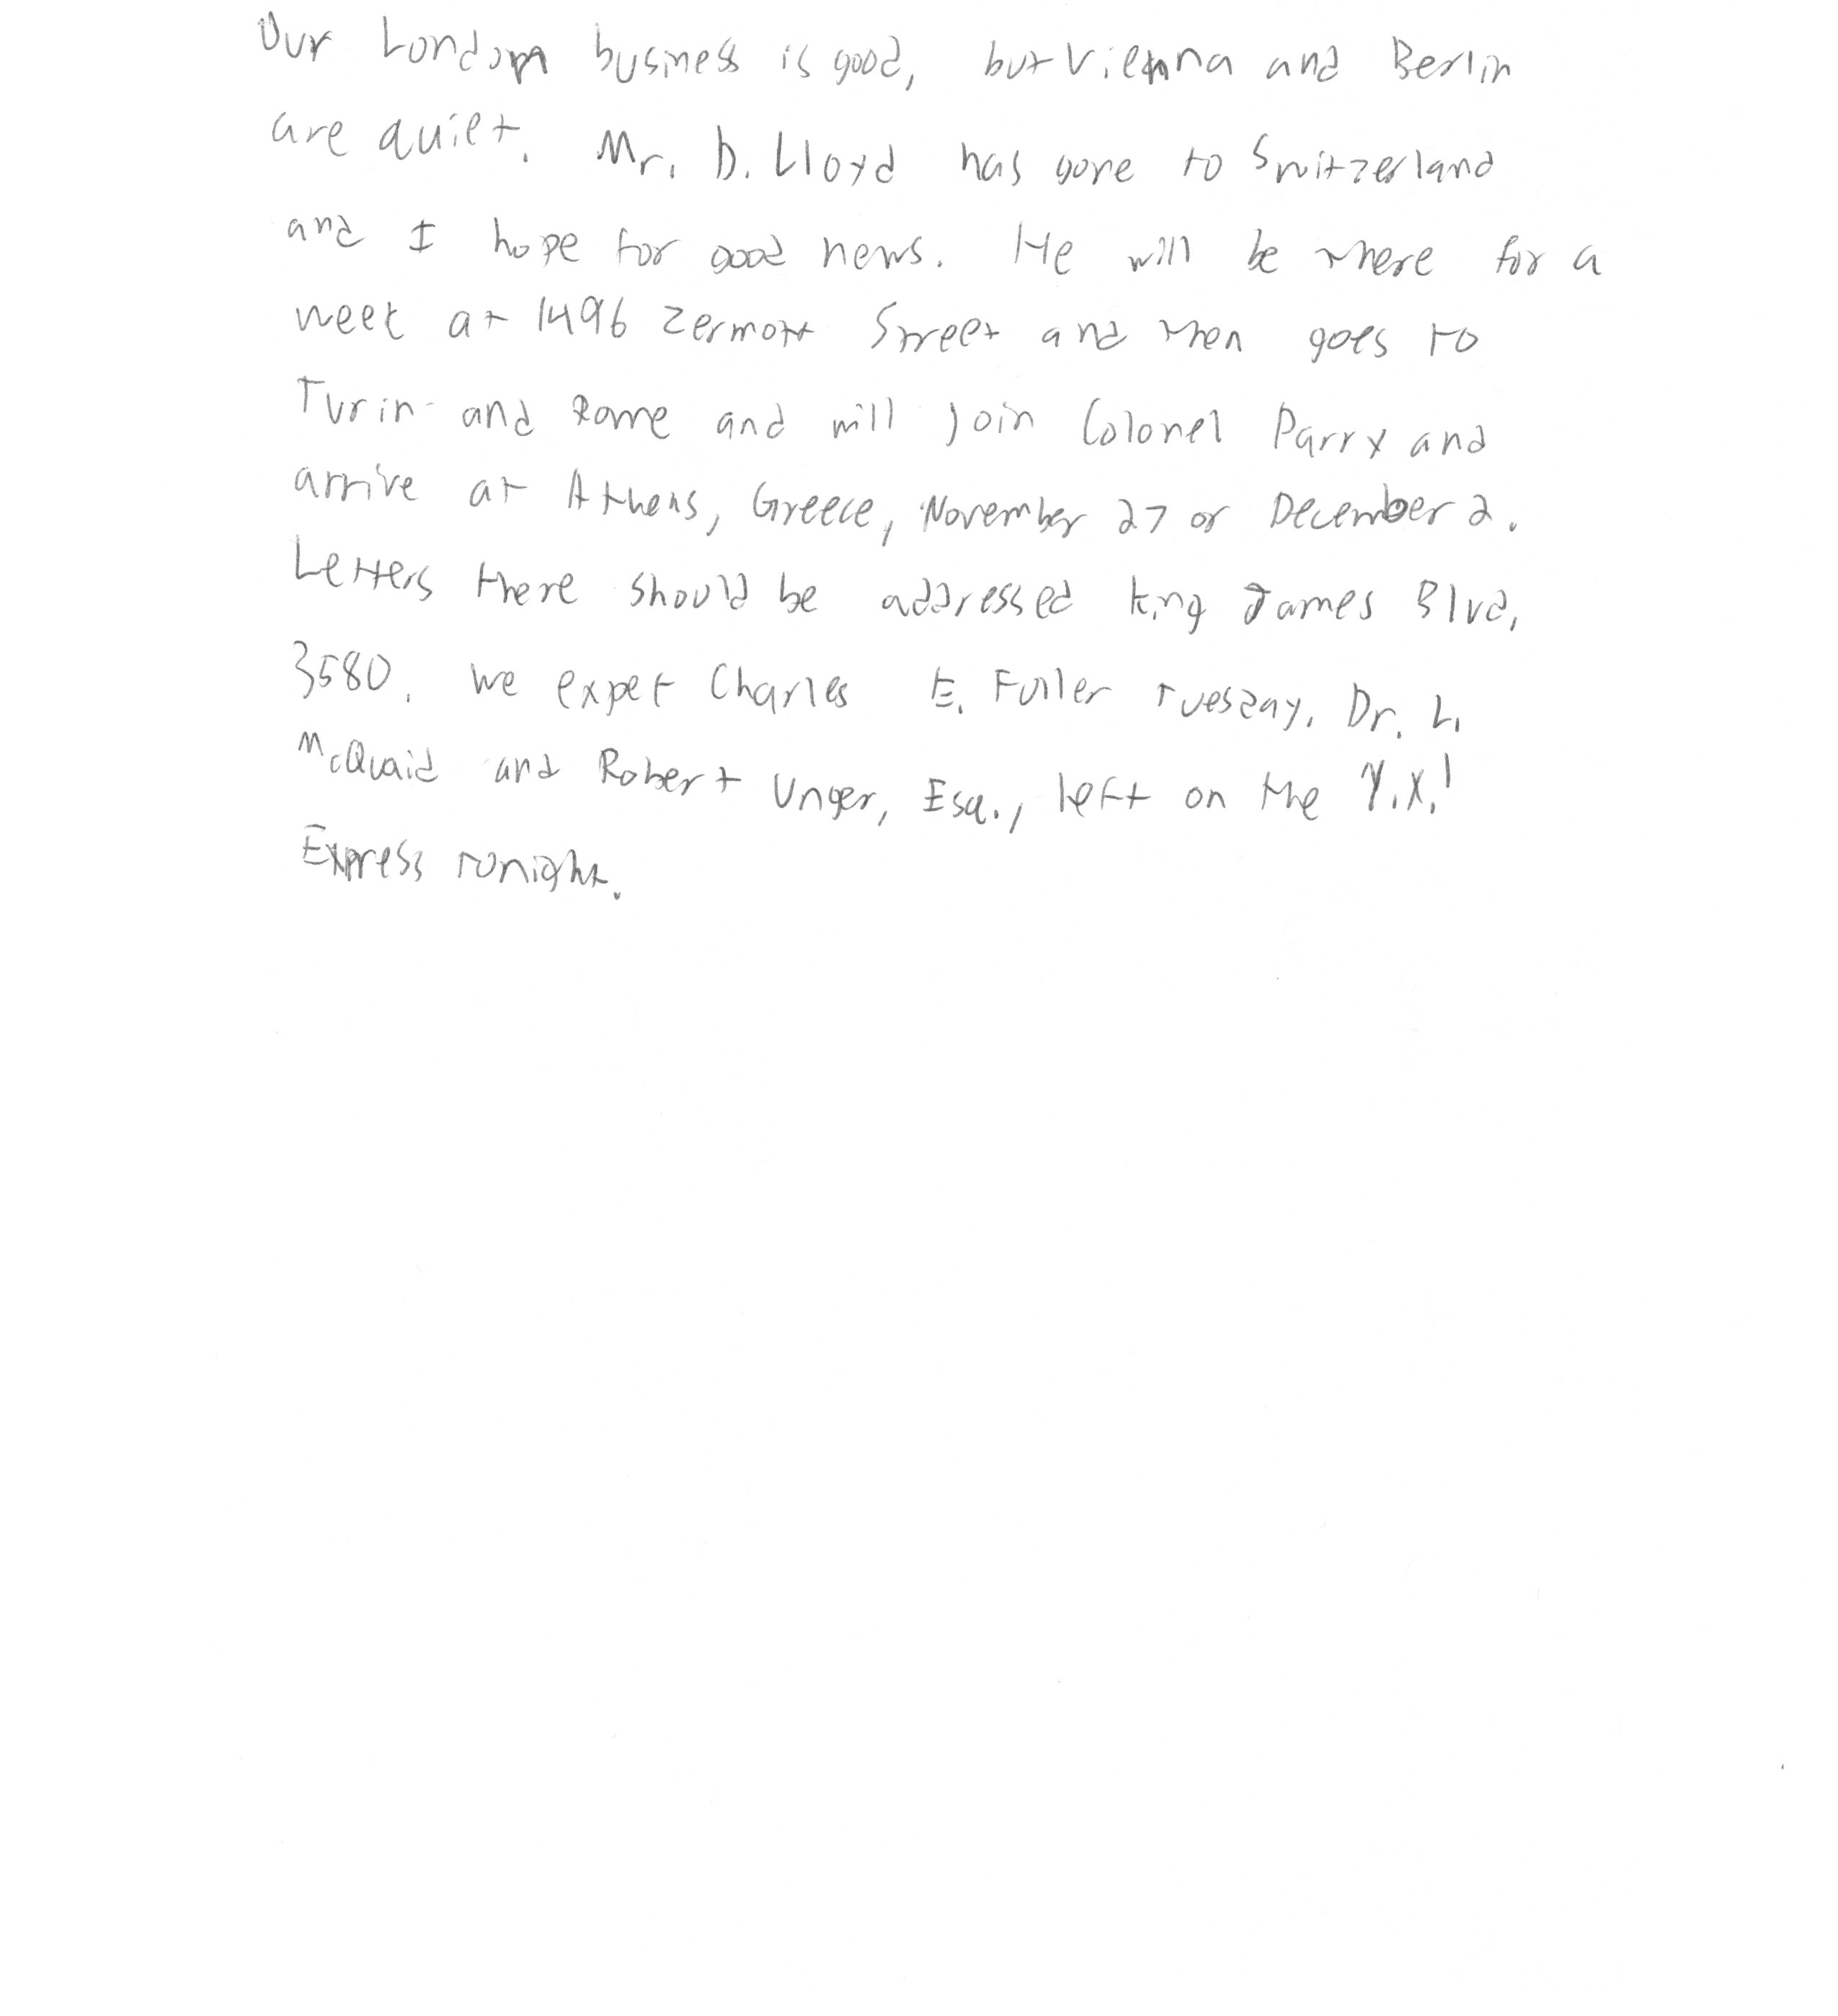 Our London business is good, but Vienna and Berlin
are quiet. Mr. D. Lloyd has gone to Switzerland
and I hope for good news. He will be there for a
week at 1496 Zermott Street and then goes to
Turin and Rome and will join Colonel Parry and
arrive at Athens, Greece, November 27 or December 2.
Letters there should be addressed King James Blvd,
3580. We expet Charles E. Fuller Tuesday. Dr. L.
McQuaid and Robert Unger, Esq., left on the Y.X.!
Express tonight.